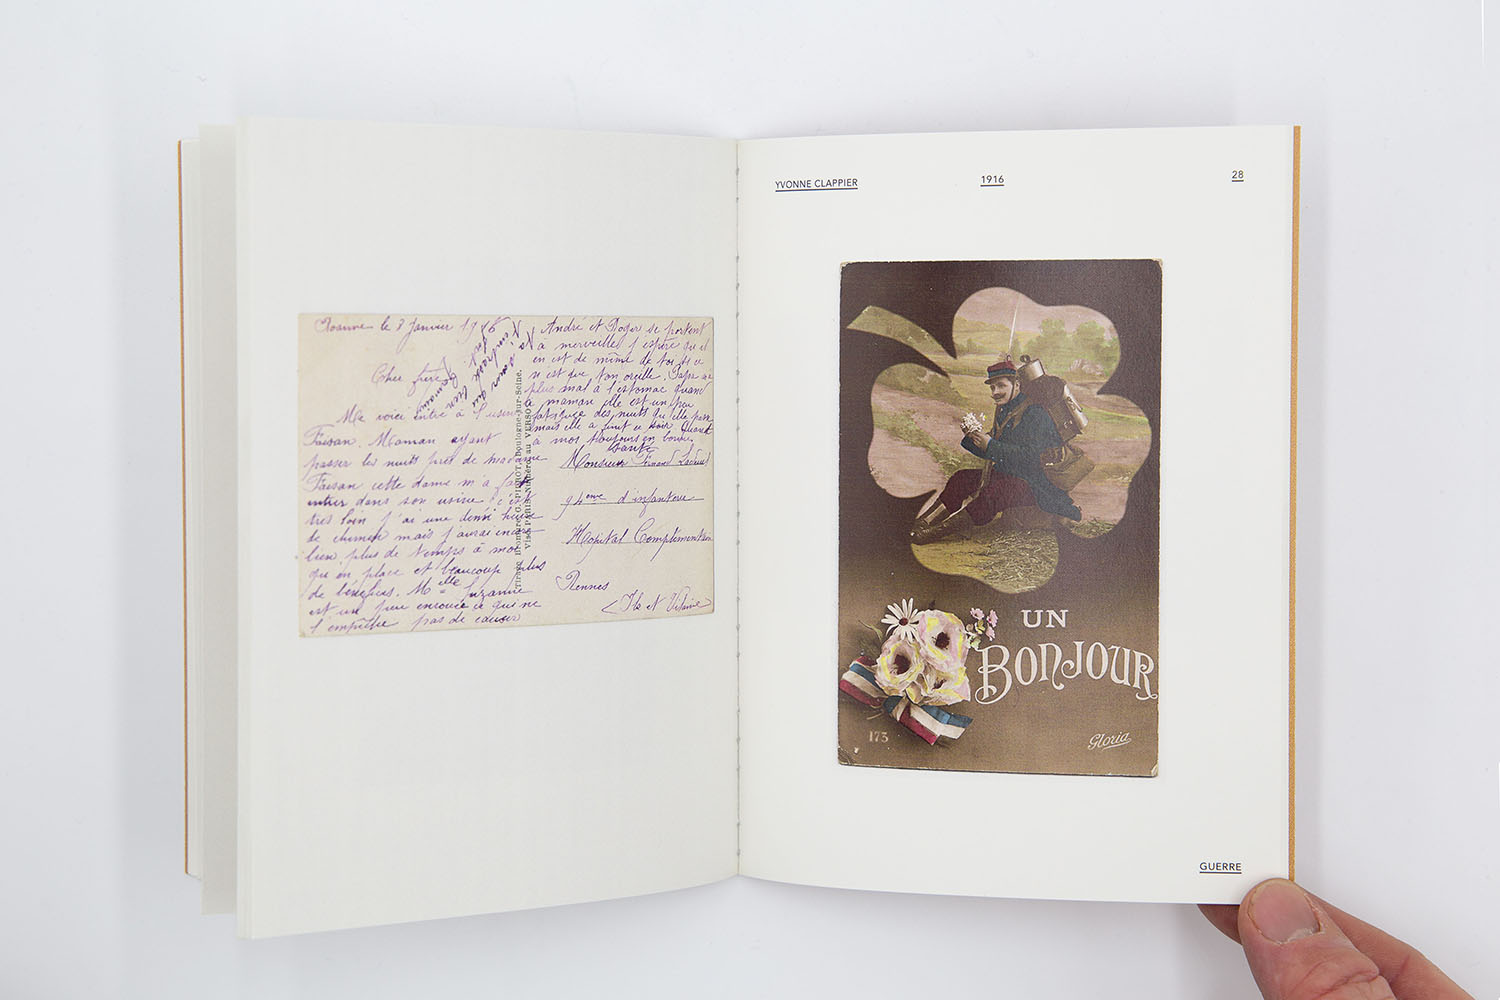 Roanne le 3 Janvier 1916
Cher frère
Me voici entré à l'usine
Faisan. Maman ayant
passer les nuits près de madame
Faisan cette dame m'a fait
entrer dans son usine c'est
très loin j'ai une demi heure
de chemin mais j'aurai
bien plus de temps à moi
qu'en place et beaucoup plus
de bénéfices. Melle Suzanne
est un peu enrouée ce qui ne
l'empêche pas de causer
André et Roger se portent
à merveille j'espère qu'il
en est de même de toi si ce
n'est que ton oreille. Papa
plus mal à l'estomac quand
à maman elle est un peu
fatiguée des nuits qu'elle passe
mais elle a finit ce soir Quand
à moi toujours en bonne
santé
Monsieur
94eme d'infanterie
Hôpital Complémentaire
Rennes
Ile et Vilaine
Visé PARIS Numéro au VERSO
YVONNE CLAPPIER
1916
28
UN
BONJOUR
173
Gloria
GUERRE